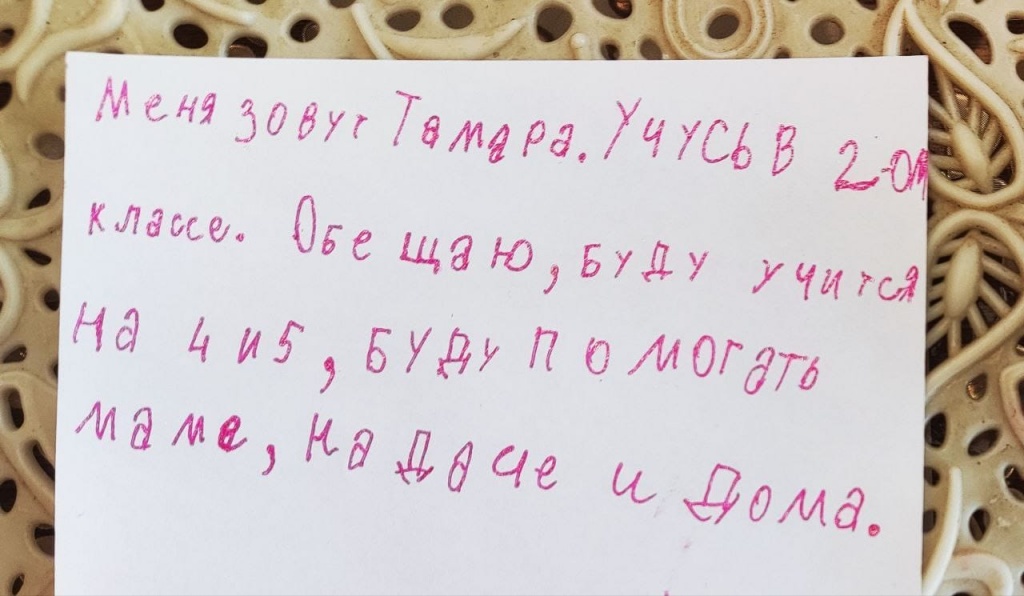 Меня зовут Тамара. Учусь в 2-ом
классе. Обещаю, буду учится
на 4 и 5, буду помогать
маме, на даче и дома.